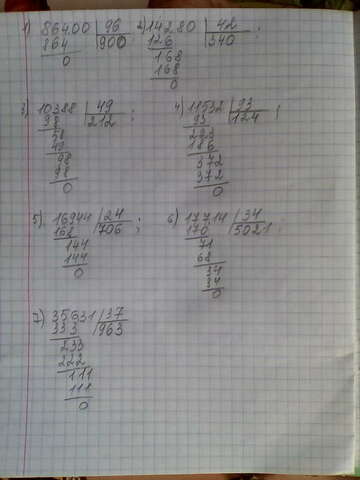 1) 86400 | 96
864 | 900
0
2) 14280 | 42 ;
126 | 340
168
168
0
3) 10388 | 49 ;
98 | 212
58
49
98
98
0
4) 11532 | 93 ;
93 | 124
223
186
372
372
0
5) 16944 | 24 ;
168 | 706
144
144
0
6) 17714 | 34 ;
170 | 5021
71
68
34
34
0
7) 35631 | 37
333 | 963
233
222
111
111
0